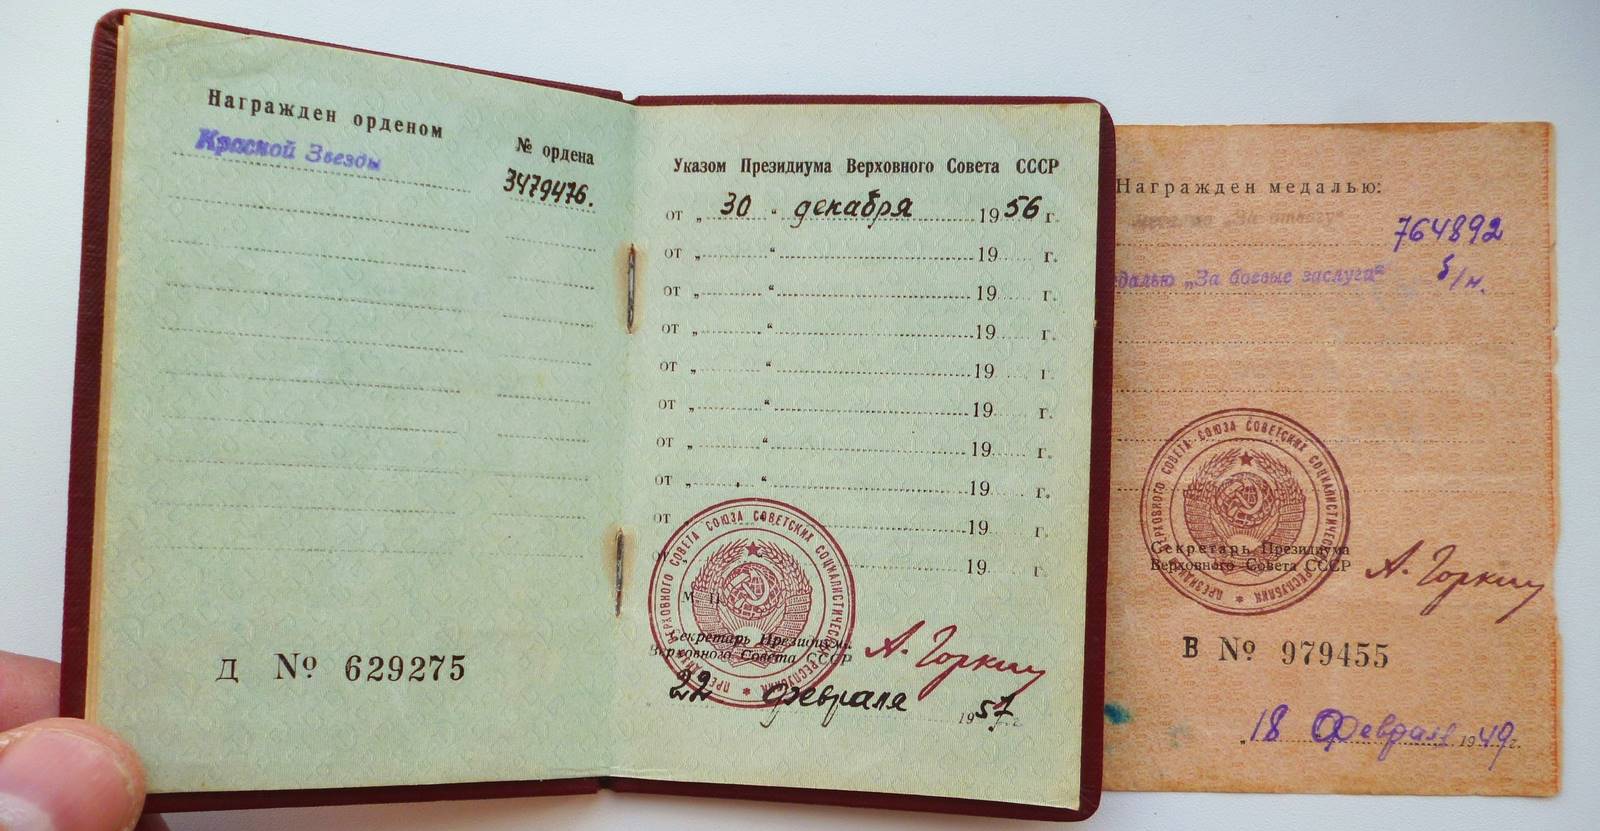 Награжден орденом
№ ордена
Красной Звезды
3479476.
Д № 629275
Указом Президиума Верховного Совета СССР
от „ 30 “ декабря 1956 г.
от „ “ 19 г.
от „ “ 19 г.
от „ “ 19 г.
от „ “ 19 г.
от „ “ 19 г.
от „ “ 19 г.
от „ “ 19 г.
от 19 г.
19 г.
М П
ПРЕЗИДИУМ ВЕРХОВНОГО СОВЕТА СОЮЗА СОВЕТСКИХ СОЦИАЛИСТИЧЕСКИХ РЕСПУБЛИК
Секретарь Президиума
Верховного Совета СССР
А. Горкин
22 февраля 1957 г.
Награжден медалью:
„За отвагу“
764892
медалью „За боевые заслуги“
б/н.
ПРЕЗИДИУМ ВЕРХОВНОГО СОВЕТА СОЮЗА СОВЕТСКИХ СОЦИАЛИСТИЧЕСКИХ РЕСПУБЛИК
Секретарь Президиума
Верховного Совета СССР
А. Горкин
В № 979455
„18 Февраля 1949 г.